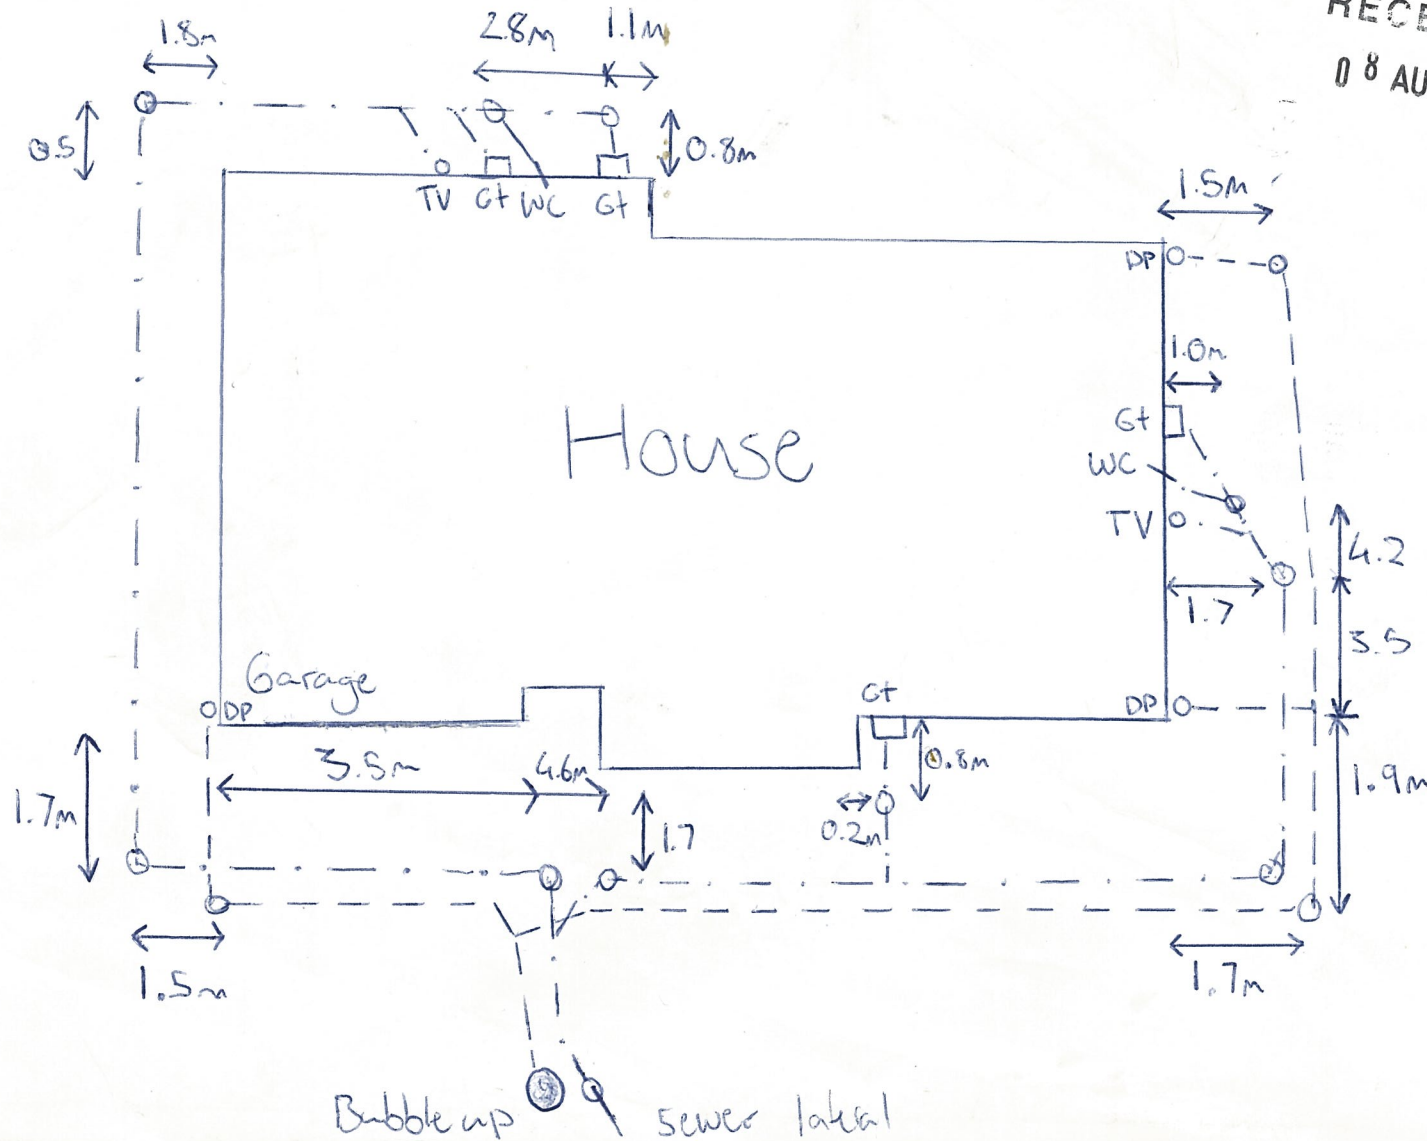 RECE
08 AU
1.8m
2.8m
1.1m
0.5
0.8m
TV Gt WC Gt
1.5m
DP
1.0m
Gt
WC
TV
House
4.2
1.7
3.5
Garage
DP
Gt
DP
3.5m
4.6m
0.8m
1.9m
1.7m
1.7
0.2m
1.5m
1.7m
Bubble up
sewer lateral